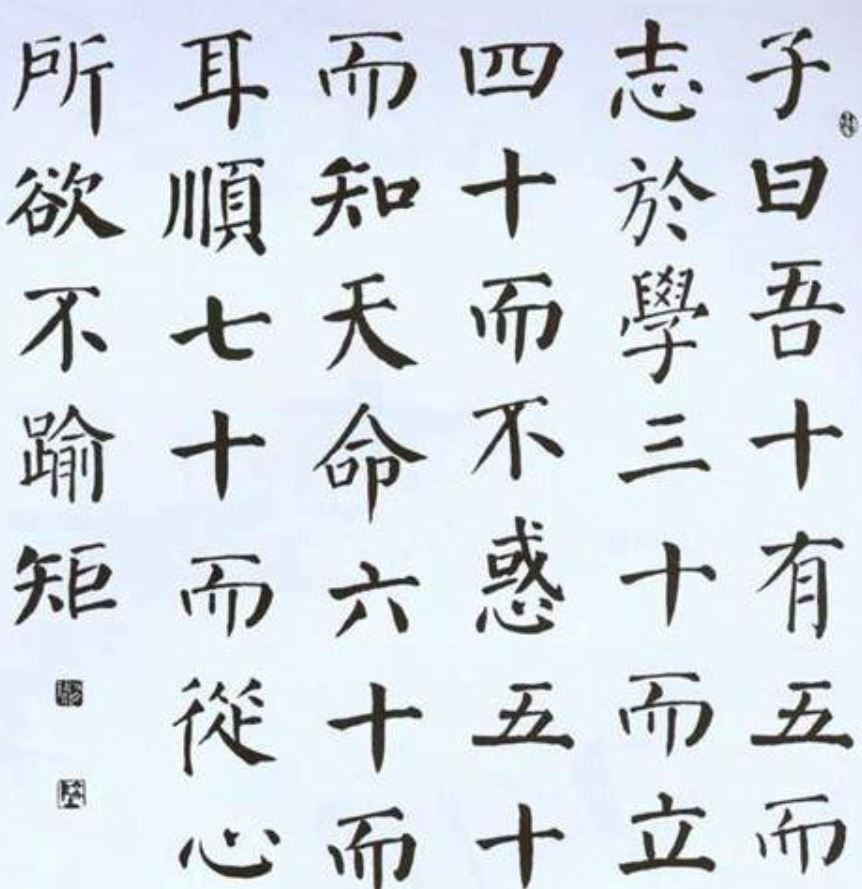 子曰吾十有五而
志於學三十而立
四十而不惑五十
而知天命六十而
耳順七十而從心
所欲不踰矩